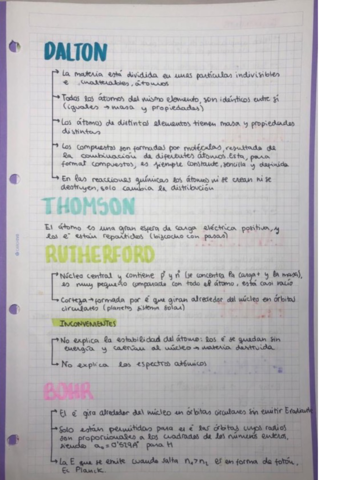 DALTON
La materia está dividida en unas partículas indivisibles
e inalterables, átomos
Todos los átomos del mismo elemento, son idénticos entre sí
(iguales → masa y propiedades)
Los átomos de distintos elementos tienen masa y propiedades
distintas
Los compuestos son formados por moléculas, resultado de
la combinación de diferentes átomos. Esta, para
formar compuestos, es siempre constante, sencilla y definida
En las reacciones químicas los átomos ni se crean ni se
destruyen, solo cambia la distribución
THOMSON
El átomo es una gran esfera de carga eléctrica positiva, y
los e⁻ están repartidos (bizcocho con pasas)
RUTHERFORD
Núcleo central y contiene p⁺ y n° (se concentra la carga + y la masa),
es muy pequeño comparado con todo el átomo, está casi vacío
Corteza → formada por e⁻ que giran alrededor del núcleo en órbitas
circulares (planetas sistema solar)
INCONVENIENTES
No explica la estabilidad del átomo: los e⁻ se quedan sin
energía y caerían al núcleo → materia destruida
No explica los espectros atómicos
BOHR
El e⁻ gira alrededor del núcleo en órbitas circulares sin emitir Energía
Solo están permitidas para el e⁻ las órbitas cuyos radios
son proporcionales a los cuadrados de los números enteros,
siendo a₀ = 0'529Å para H
La E que se emite cuando salta n₂ > n₁ es en forma de fotón.
Ec Planck